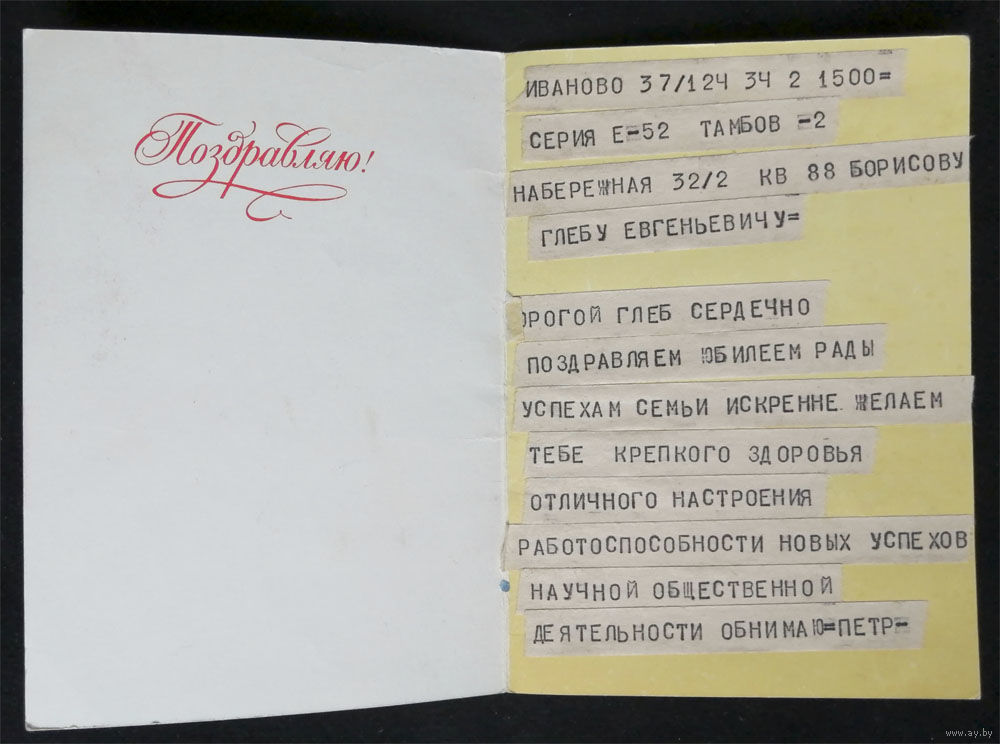 Поздравляю!
ИВАНОВО 37/124 34 2 1500=
СЕРИЯ Е-52 ТАМБОВ -2
НАБЕРЕЖНАЯ 32/2 КВ 88 БОРИСОВУ
ГЛЕБУ ЕВГЕНЬЕВИЧУ=
ОРОГОЙ ГЛЕБ СЕРДЕЧНО
ПОЗДРАВЛЯЕМ ЮБИЛЕЕМ РАДЫ
УСПЕХАМ СЕМЬИ ИСКРЕННЕ ЖЕЛАЕМ
ТЕБЕ КРЕПКОГО ЗДОРОВЬЯ
ОТЛИЧНОГО НАСТРОЕНИЯ
РАБОТОСПОСОБНОСТИ НОВЫХ УСПЕХОВ
НАУЧНОЙ ОБЩЕСТВЕННОЙ
ДЕЯТЕЛЬНОСТИ ОБНИМАЮ=ПЕТР-
www.ay.by